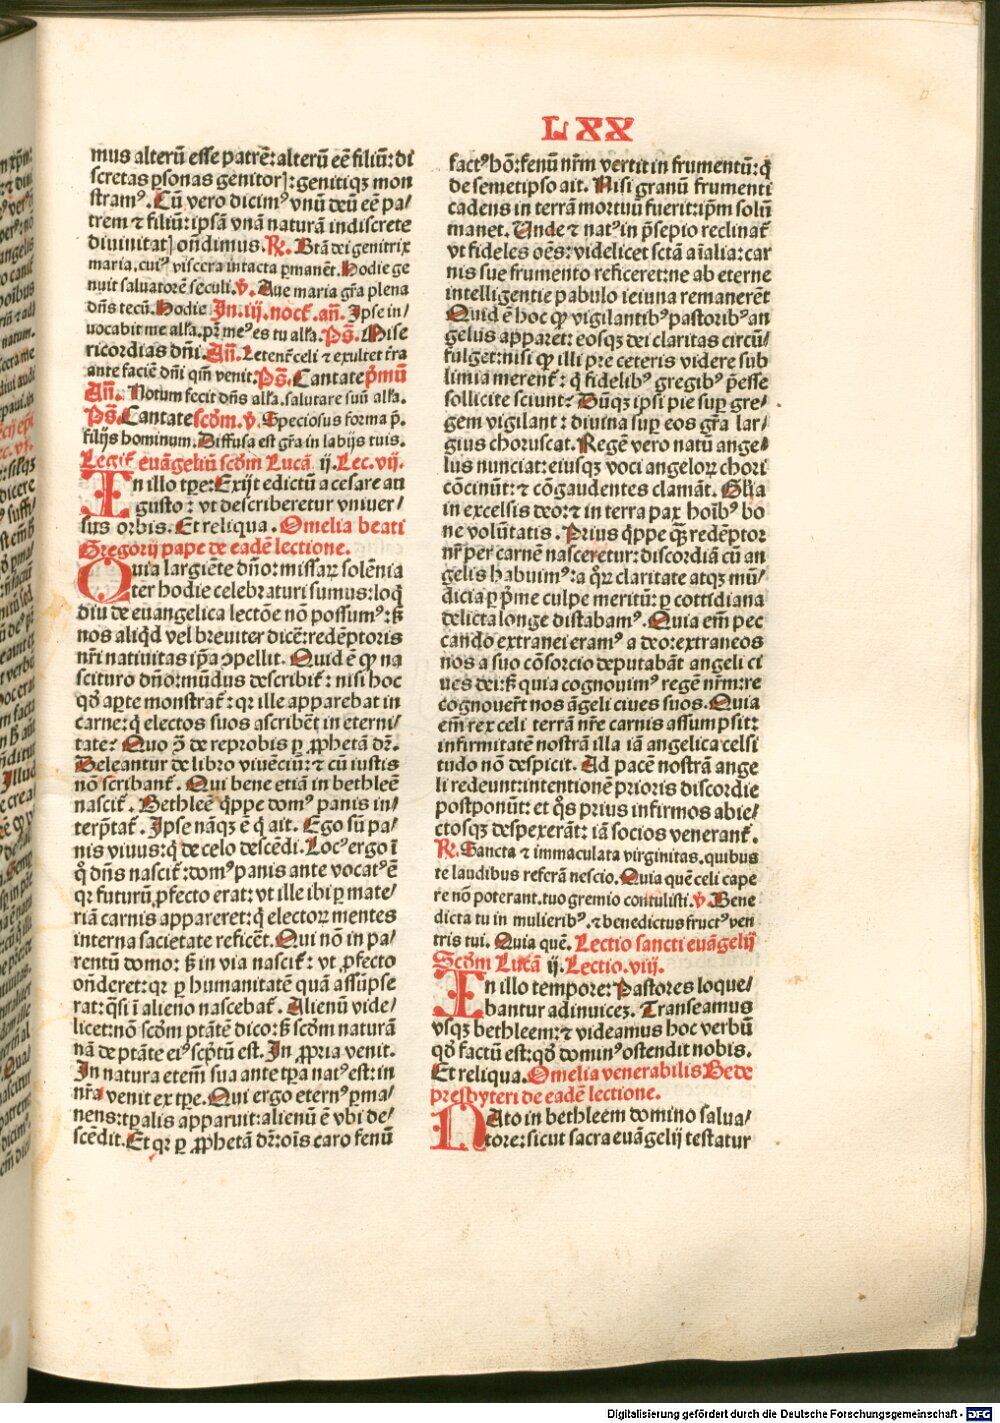 LXX
mus alterū esse patrē: alterū eē filiū: di
scretas ꝑsonas genitorꝭ: genitiqꝫ mon
stramꝰ. Cū vero dicimꝰ vnū deū eē pa/
trem ⁊ filiū: ipsā vnā naturā indiscrete
diuinitatꝭ oñdimus. ℞. Btā dei genitrix
maria, cuiꝰ viscera intacta ꝑmanēt. Hodie ge
nuit saluatorē seculi. ℣. Aue maria gr̄a plena
dñs tecū. Hodie In .iij. noct̄. añ. Ipse in/
uocabit me alła. pr̄ meꝰ es tu alła. Ps̄. Mise
ricordias dñi. Añ. Letent̄ celi ⁊ exultet t̄ra
ante faciē dñi qm̄ venit. Ps̄. Cantate p̄mū
Añ. Notum fecit dñs alła. salutare suū alła.
Ps̄. Cantate scd̄m. ℣. Speciosus forma p̄.
filijs hominum. Diffusa est gr̄a in labijs tuis.
Legit̄ euāgeliū scd̄m Lucā ij. Lec. vij.
In illo tp̄e: Exijt edictū a cesare au
gusto: vt describeretur vniuer/
sus orbis. Et reliqua. Omelia beati
Gregorij pape de eadē lectione.
Quia largiēte dño: missaꝝ solēnia
ter hodie celebraturi sumus: loq̄
diu de euangelica lectōe nō possumꝰ: sꝫ
nos aliqd̄ vel breuiter dicē: redēptoris
nr̄i natiuitas ip̄a ↄpellit. Quid ē qꝙ na
scituro dño: mūdus describit̄: nisi hoc
qd̄ aꝑte monstrat̄: qꝛ ille apparebat in
carne: q̄ electos suos ascribēt in eterni/
tate? Quo ↄ̄ de reprobis ꝑ ꝓphetā dr̄.
Deleantur de libro viuēciū: ⁊ cū iustis
nō scribant̄. Qui bene etiā in bethleē
nascit̄. Bethleē q̄ppe domꝰ panis in/
terp̄tat̄. Ipse nāqꝫ ē q̄ ait. Ego sū pa/
nis viuus: q̄ de celo descēdi. Locꝰ ergo ī
q̄ dñs nascit̄: domꝰ panis ante vocatꝰ ē
qꝛ futurū ꝓfecto erat: vt ille ibi ꝑ mate/
riā carnis appareret: q̄ electoꝝ mentes
interna sacietate reficēt. Qui nō in pa/
rentū domo: sꝫ in via nascit̄: vt ꝓfecto
oñderet: qꝛ ꝑ humanitatē quā assūpse
rat: q̄si ī alieno nascebat̄. Alienū vide/
licet: nō scd̄m ptātē dico: sꝫ scd̄m naturā
nā de ptāte eiꝰ scp̄tū est. In ꝓpria venit.
In natura etem̄ sua ante tp̄a natꝰ est: in
nr̄a venit ex tp̄e. Qui ergo eternꝰ ꝑma/
nens: tꝑalis apparuit: alienū ē vbi de/
scēdit. Et qꝛ ꝑ ꝓphetā dr̄: oīs caro fenū
factꝰ hō: fenū nr̄m vertit in frumentū: q̄
de semetipso ait. Nisi granū frumenti
cadens in terrā mortuū fuerit: ip̄m solū
manet. Unde ⁊ natꝰ in p̄sepio reclinat̄
vt fideles oēs: videlicet sctā aīalia: car
nis sue frumento reficeret: ne ab eterne
intelligentie pabulo ieiuna remanerēt
Quid ē hoc qꝙ vigilantibꝰ pastoribꝰ an
gelus apparet: eosqꝫ dei claritas circū/
fulget: nisi qꝙ illi pre ceteris videre sub
limia merent̄: q̄ fidelibꝰ gregibꝰ p̄esse
sollicite sciunt? Dūqꝫ ipsi pie suꝑ gre/
gem vigilant: diuina suꝑ eos gr̄a lar/
gius choruscat. Regē vero natū ange/
lus nunciat: eiusqꝫ voci angeloꝝ chori
cōcinūt: ⁊ cōgaudentes clamāt. Glīa
in excelsis deo: ⁊ in terra pax hoībꝰ bo
ne volūtatis. Prius q̄ppe qꝫ redēptor
nr̄ per carnē nasceretur: discordiā cū an
gelis habuimꝰ: a qꝝ claritate atqꝫ mū/
dicia ꝑ p̄me culpe meritū: ꝑ cottidiana
delicta longe distabamꝰ. Quia em̄ pec
cando extranei eramꝰ a deo: extraneos
nos a suo cōsorcio deputabāt angeli ci
ues dei: sꝫ quia cognouimꝰ regē nr̄m: re
cognouert̄ nos āgeli ciues suos. Quia
em̄ rex celi terrā nr̄e carnis assumpsit:
infirmitatē nostrā illa iā angelica celsi
tudo nō despicit. Ad pacē nostrā ange
li redeunt: intentionē prioris discordie
postponūt: et q̄s prius infirmos abie/
ctosqꝫ despexerāt: iā socios venerant̄.
℞. Sancta ⁊ immaculata virginitas. quibus
te laudibus referā nescio. Quia quē celi cape
re nō poterant. tuo gremio contulisti. ℣. Bene
dicta tu in mulieribꝰ. ⁊ benedictus fructꝰ ven
tris tui. Quia quē. Lectio sancti euāgelij
Scd̄m Lucā ij. Lectio. viij.
In illo tempore: Pastores loque/
bantur adinuicē. Transeamus
vsqꝫ bethleem: ⁊ videamus hoc verbū
qd̄ factū est: qd̄ dominꝰ ostendit nobis.
Et reliqua. Omelia venerabilis Bede
presbyteri de eadē lectione.
Nato in bethleem domino salua/
tore: sicut sacra euāgelij testatur
Digitalisierung gefördert durch die Deutsche Forschungsgemeinschaft - DFG